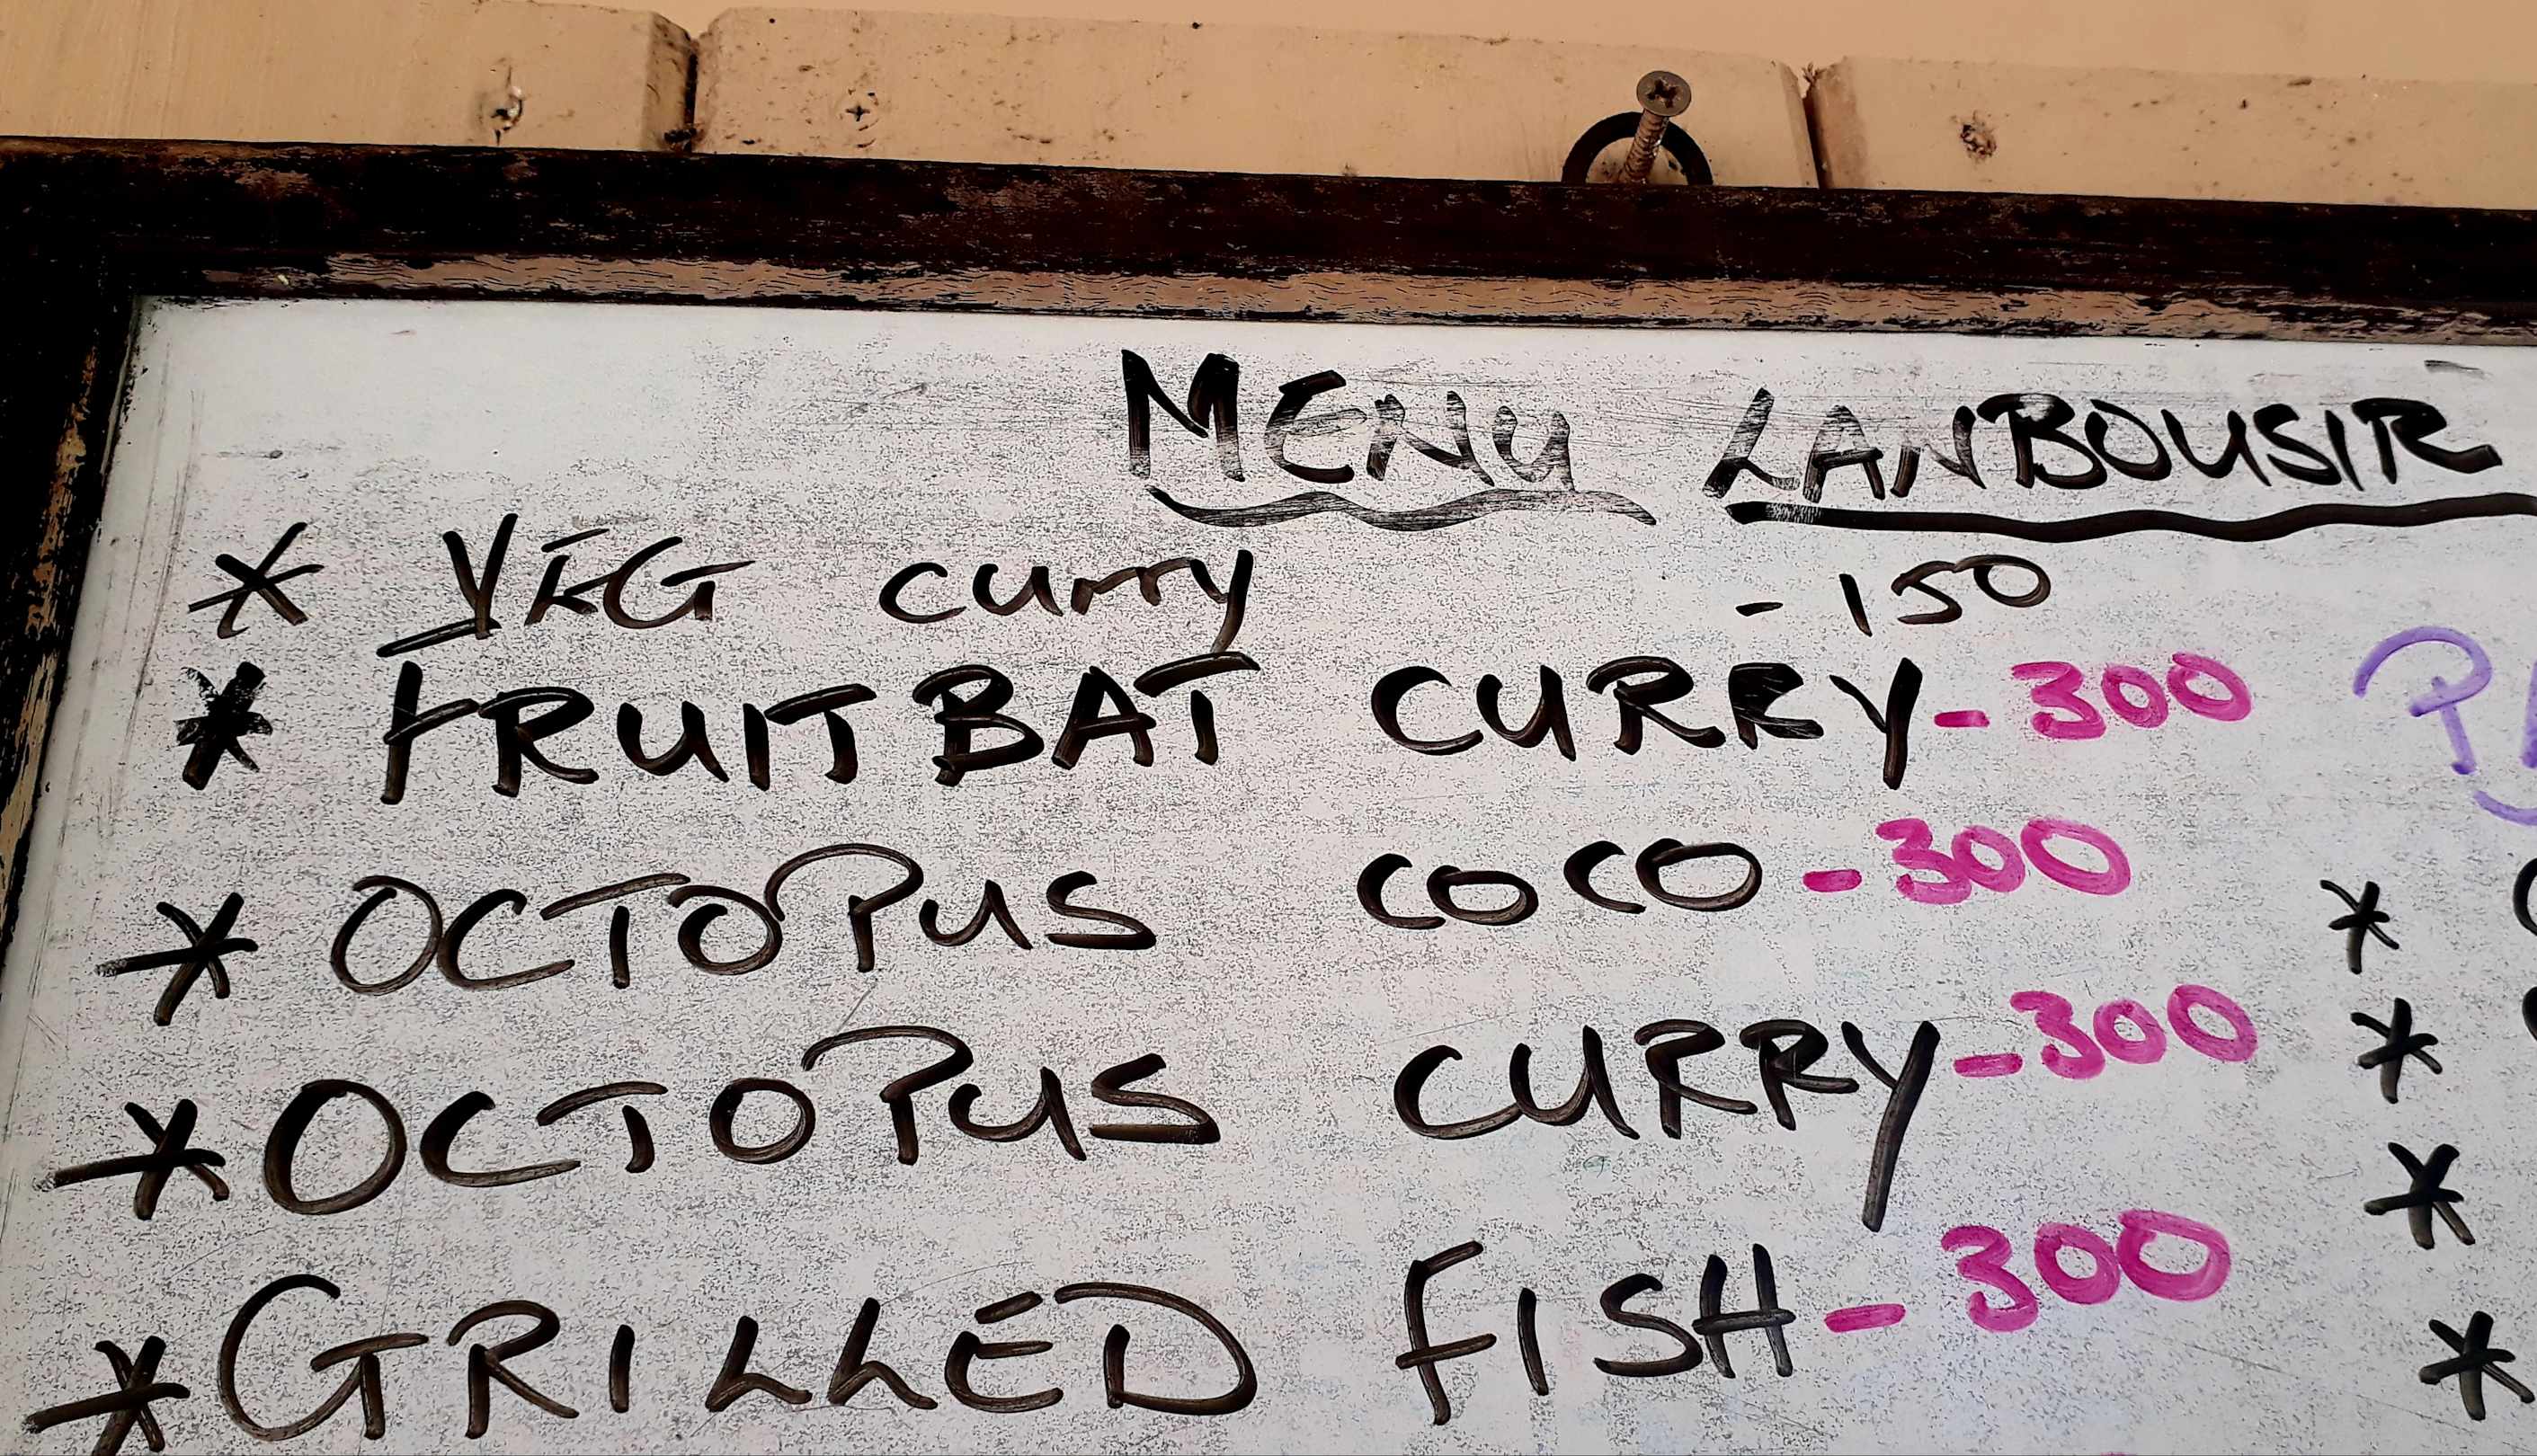 MENU LANBOUSIR
* VEG curry - 150
* FRUIT BAT CURRY - 300
* OCTOPUS COCO - 300
* OCTOPUS CURRY - 300
* GRILLED FISH - 300